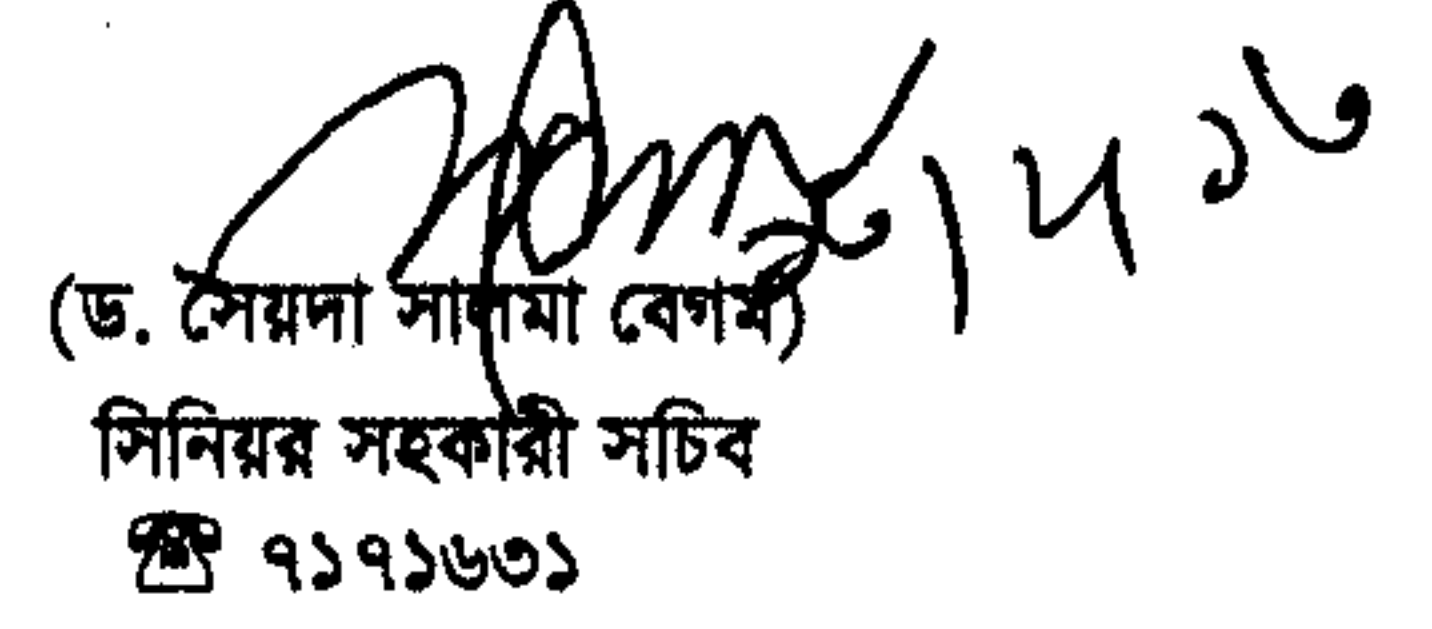 (ড. সৈয়দা সালমা বেগম)
সিনিয়র সহকারী সচিব
☎ ৭১৭১৬৩১